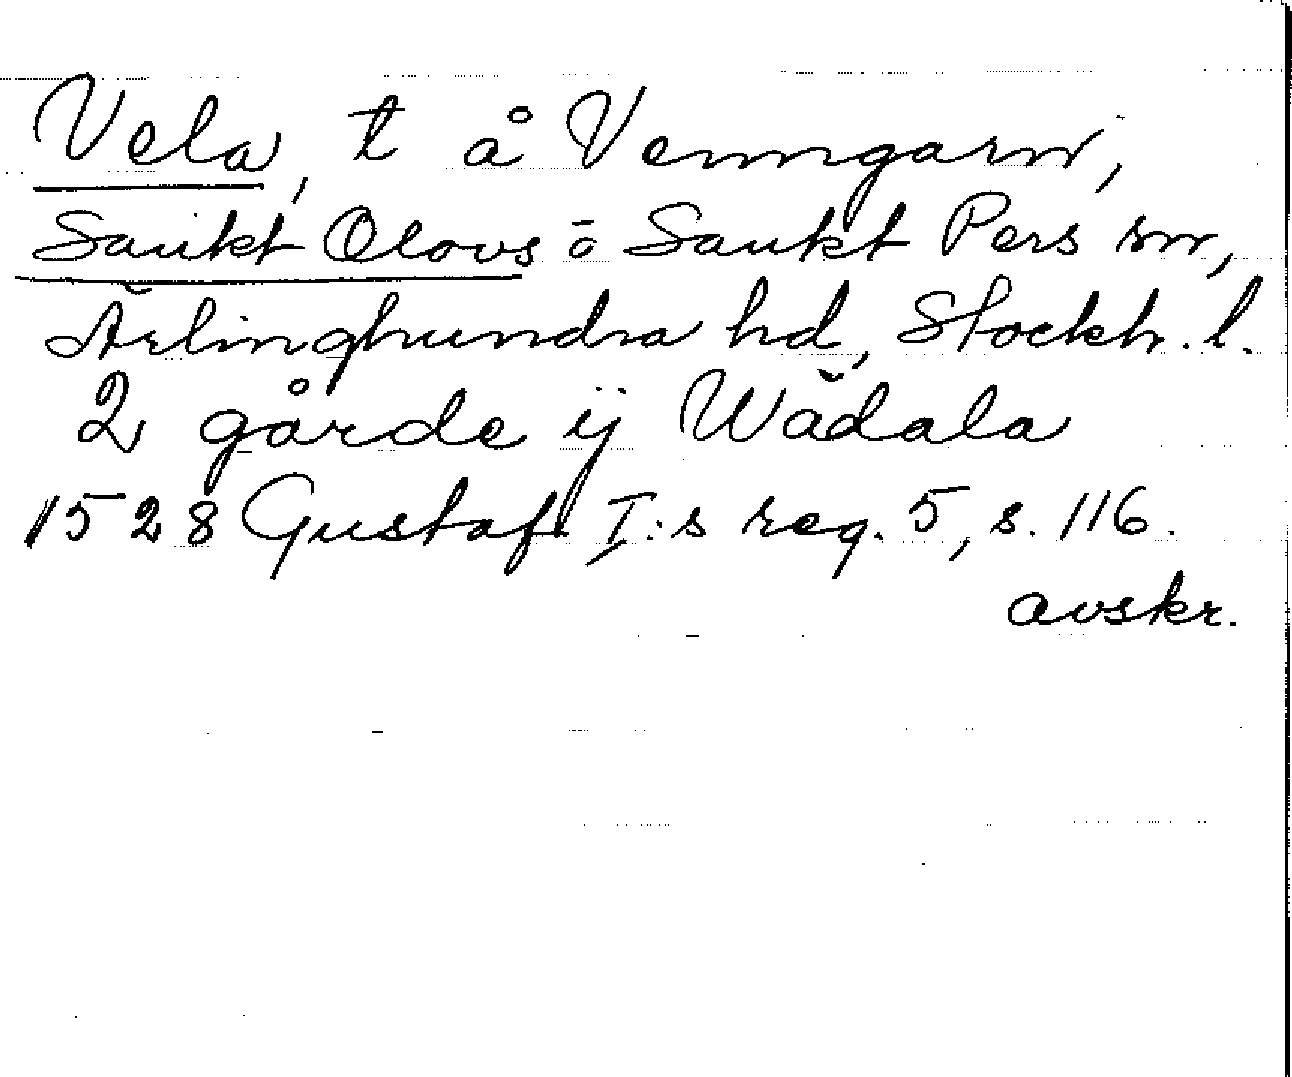 Vela, t å Venngarn,
Sankt Olovs o Sankt Pers sn,
Ärlinghundra hd, Stockh. l.
2 gårde ij Wädala
1528 Gustaf I:s reg. 5, s. 116.
avskr.